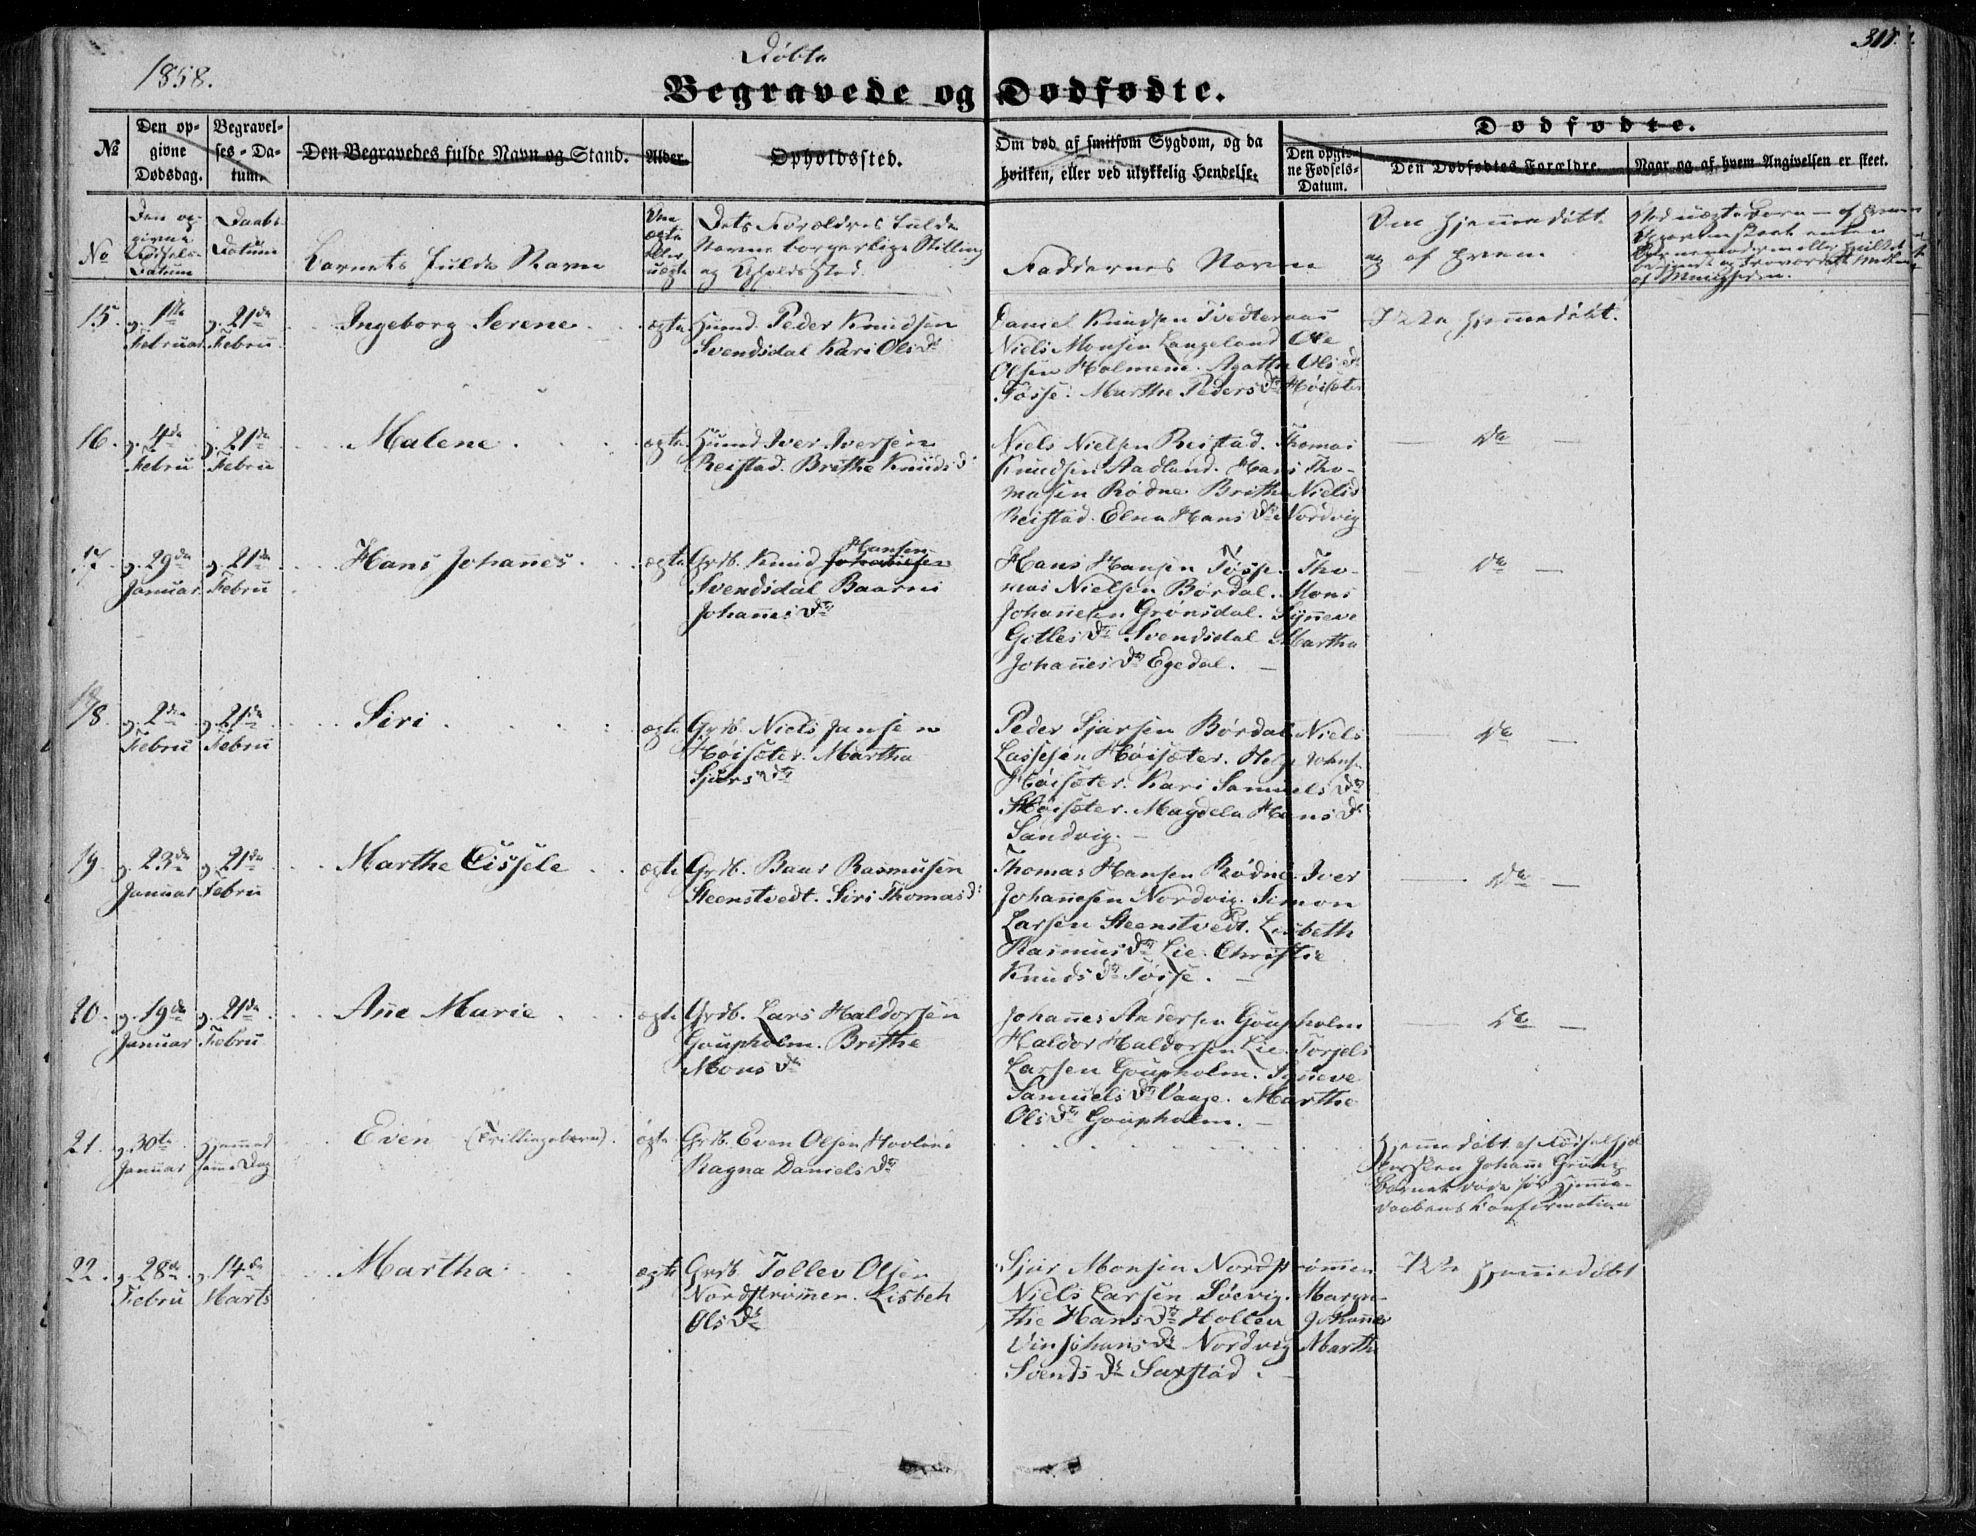 1858.
Døbte
Begravede og Dødfødte.
No
Den op-
givne
Dødsdag.
Begravel-
ses-Da-
tum.
Den Begravedes fulde Navn og Stand.
Alder.
Opholdssted.
Om død af smitsom Sygdom, og da
hvilken, eller ved ulykkelig Hendelse.
Dødfødte.
Den opgiv-
ne Fødsels-
Datum.
Den Dødfødtes Forældre.
Naar og af hvem Angivelsen er skeet.
No
Den op-
givne
Fødsels-
Datum
Daabs-
Datum
Barnets fulde Navn
Om
ægte
eller
uægte
Dets Forældres fulde
Navne borgerlige Stilling
og Opholdssted.
Faddernes Navne
Om hjemmedøbt
og af hvem
15. g. 1ste
Februar
g. 21de
Febru
Ingeborg Serene
ægte
Huusd. Peder Knudsen
Svendsdal Kari Olsdr
Daniel Knudsen Tvedteraas
Niels Monsen Langeland Ole
Olsen Holmene. Agathe Olsdr
Fosse. Marthe Pedersdr Høisæter
Ikke hjemmedøbt.
16. g. 4de
Febru
g. 21de
Febru
Malene
ægte
Huusd Iver Iversen
Reistad. Brithe Knudsd
Niels Nielsen Reistad. Thomas
Knudsen Aadland. Hans Tho-
masen Rødne. Brithe Nielsd
Reistad. Elna Hansdr Nordvig
Do
17 g. 29de
Januar
g. 21de
Febru
Hans Johannes
ægte
Grdb. Knud Hansen
Svendsdal Baarni
Johannesdr
Hans Hansen Fosse. Tho-
mas Nielsen Børdal. Mons
Johannesen Grønsdal. Synneve
Gotlesdr Svendsdal Martha
Johannesdr Egedal.
Do
18. g. 2den
Febru
g. 21de
Febru
Siri
ægte
Grdb. Niels Jansen
Høisæter. Martha
Sjursdtr
Peder Sjursen Børdal Niels
Lassesen Høisæter.
Høisæter. Kari Samuelsdr
Høisæter. Magdela Hansdr
Sandvig.
Do
19. g. 23de
Januar
g. 21de
Febru
Marthe Cissele
ægte
Grdb. Baar Rasmusen
Steenstvedt. Siri Thomasd
Thomas Hansen Rødne. Iver
Johannesen Nordvig. Simon
Larsen Steenstvedt. Lisbeth
Rasmusdr Lie. Christie
Knudsdr Fosse.
Do
20. g. 19de
Januar
g. 21de
Febru
Ane Marie
ægte
Grdb. Lars Haldorsen
Goupholm. Brithe
Monsdr
Johannes Andersen Goupholm
Haldor Haldorsen Lie. Torjels
Larsen Goupholm. Synneve
Samuelsdr Vaage. Marthe
Olsdr Goupholm.
Do
21. g. 30te
Januar
hjemmed
samme Dag
Even (Trillingebørn).
ægte
Grdb. Even Olsen
Ragna Danielsdr
Hjemmedøbt af
Johann
Barnet døde før Hjemme-
daabens Konfirmation
22. g. 28de
Febru
g. 14de
Marts
Martha
ægte
Grdb. Tollev Olsen
Nordstrømmen. Lisbeh
Olsdr
Sjur Monsen Nordstrømmen
Niels Larsen Søevig. Margre-
the Hansdr Hollen Johannes
Nordvig Marthe
Svendsdr Saxstad.
Ikke hjemmedøbt